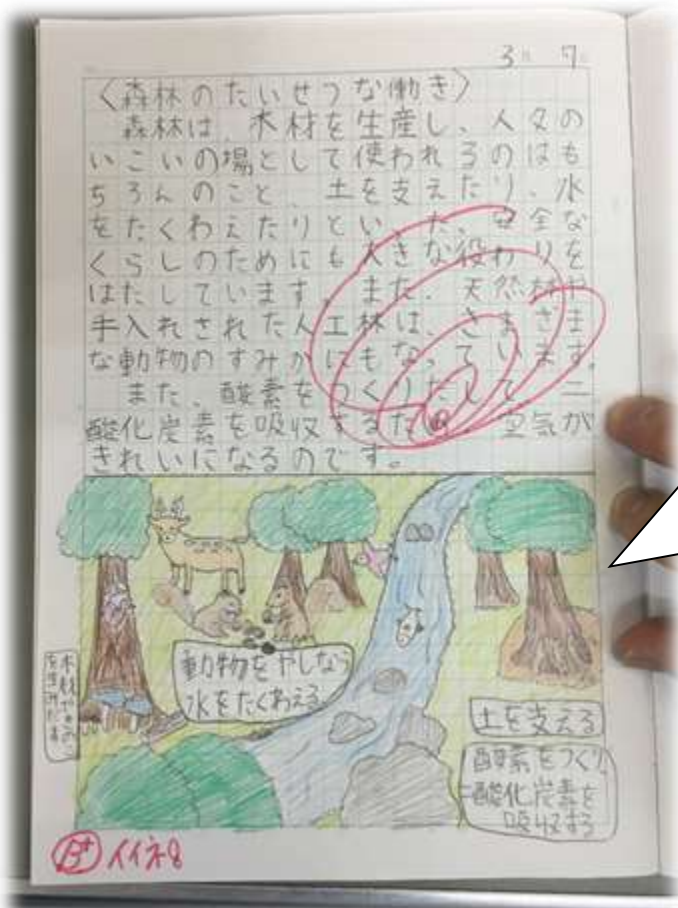 3月 7日
〈森林のたいせつな働き〉
森林は、木材を生産し、人々の
いこいの場として使われるのはも
ちろんのこと、土を支えたり、水
をたくわえたりといった、安全な
くらしのためにも大きな役わりを
はたしています。また、天然林や
手入れされた人工林は、さまざま
な動物のすみかにもなっています。
また、酸素をつくりだして、二
酸化炭素を吸収するため、空気が
きれいになるのです。
動物をやしなう
水をたくわえる
土を支える
酸素をつくり、
二酸化炭素を
吸収する
B+ イイネ8